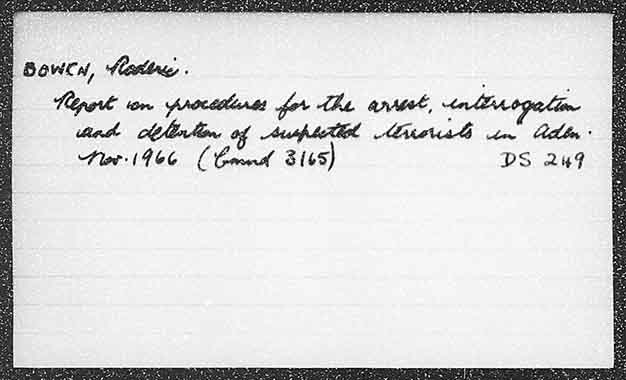 BOWEN, Roderic.
Report on procedures for the arrest, interrogation
and detention of suspected terrorists in Aden.
Nov. 1966 (Cmnd 3165) DS 249